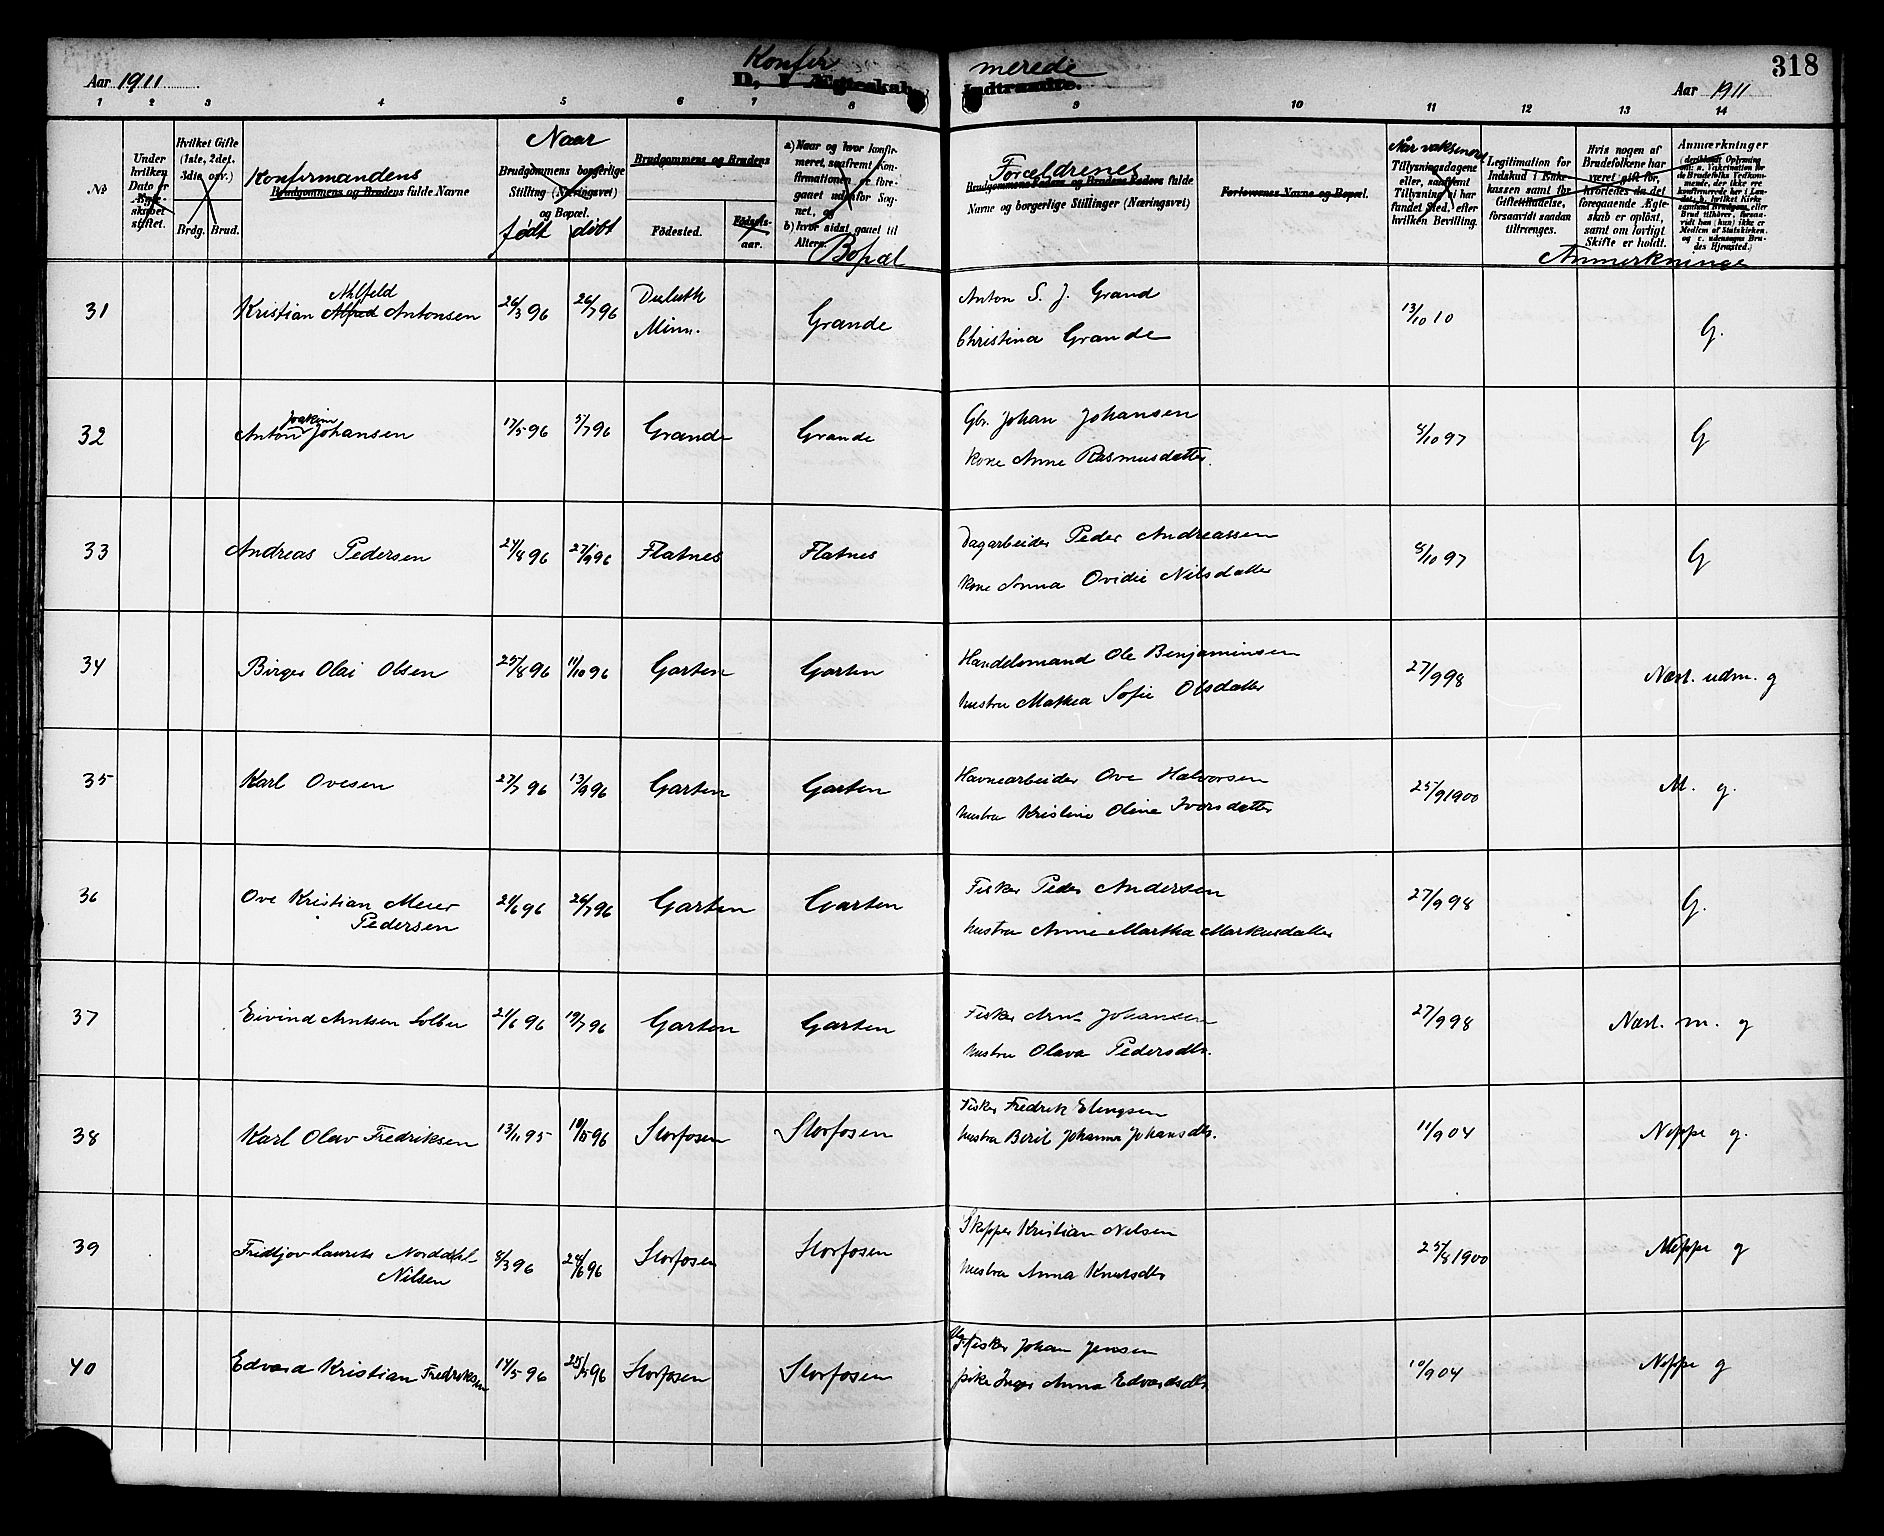 Aar 1911
Konfirmerede
D, I Ægteskab Indtraadte.
318
Aar 1911
1 2 3 4 5 6 7 8 9 10 11 12 13 14
No
Under hvilken Dato er Ægteskabet stiftet.
Hvilket Gifte (1ste, 2det. 3die osv.)
Brdg. Brud.
Konfirmandens
Brudgommens og Brudens fulde Navne
Naar
Brudgommens borgerlige Stilling (Næringsvei) og Bopæl.
født døbt
Brudgommens og Brudens
Födested.
Födsels-aar.
a) Naar og hvor konfirmeret, saafremt Konfirmationen er foregaaet udenfor Sognet, og
b) hvor sidst gaaet til Alters.
Bopæl
Forældrenes
Brudgommens Faders og Brudens Faders fulde Navne og borgerlige Stillinger (Næringsvei)
Forlovernes Navne og Bopæl.
Når vaksineret
Tillysningsdagene eller, saafremt Tillysning ei har fundet Sted, efter hvilken Bevilling.
Legitimation for Indskud i Enkekassen samt for Giftettilladelse, forsaavidt saadan tiltrænges.
Hvis nogen af Brudefolkene har været gift før, hvorledes da det foregaaende Ægteskab er oplöst, samt om lovligt Skifte er holdt.
Anmærkninger
Anmerkninge
31 Kristian Ahlfeld Alfred Antonsen 26/3 96 26/7 96 Duluth Minn. Grande Anton S. J. Grand
Christina Grande 13/10 10 G.
32 Anton Joakim Johansen 17/5 96 5/7 96 Grande Grande Gbr. Johan Johansen
kone Anne Rasmusdatter. 8/10 97 G
33 Andreas Pedersen 24/8 96 27/9 96 Flatnes Flatnes Dagarbeider Peder Andreassen
kone Anna Ovidie Nilsdatter 8/10 97 G
34 Birger Olai Olsen 25/8 96 11/10 96 Garten Garten Handelsmand Ole Benjaminsen
hustru Mathea Sofie Olsdatter 27/9 98 Næst. udm. g
35 Karl Ovesen 27/7 96 13/9 96 Garten Garten Havnearbeider Ove Halvorsen
hustru Kristine Oline Iversdatter 25/9 1900 M. g.
36 Ove Kristian Meier
Pedersen 21/6 96 26/7 96 Garten Garten Fisker Peder Andersen
hustru Anne Martha Markusdatter 27/9 98 G.
37 Eivind Arntsen Solber 21/6 96 19/7 96 Garten Garten Fisker Arnt Johansen
hustru Olava Pedersdtr. 27/9 98 Næst. m. g
38 Karl Olav Fredriksen 13/11 95 10/5 96 Storfosen Storfosen Fisker Fredrik Elingsen
hustru Berit Johanna Johansdtr. 11/9 04 Neppe g.
39 Fridtjov Laurits Norddahl
Nilsen 8/3 96 24/6 96 Storfosen Storfosen Skipper Kristian Nilsen
hustru Anna Knutsdtr 25/8 1900 Neppe g
40 Edvard Kristian Fredriksen 14/5 96 25/5 96 Storfosen Storfosen Ug. Fisker Johan Jensen
pike Inger Anna Edvardsdtr. 10/9 04 Neppe g